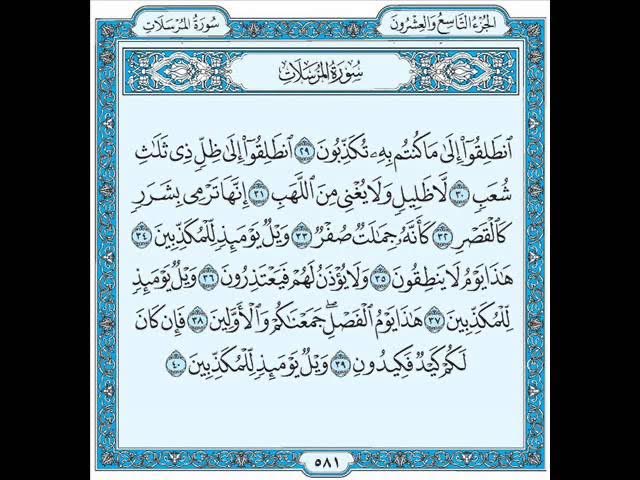 الجزء التاسع والعشرون
سورة المرسلات
سُورَةُ المُرْسَلَاتِ
ٱنطَلِقُوٓا۟ إِلَىٰ مَا كُنتُم بِهِۦ تُكَذِّبُونَ ٢٩ ٱنطَلِقُوٓا۟ إِلَىٰ ظِلٍّ ذِى ثَلَٰثِ
شُعَبٍ ٣٠ لَّا ظَلِيلٍ وَلَا يُغْنِى مِنَ ٱللَّهَبِ ٣١ إِنَّهَا تَرْمِى بِشَرَرٍ
كَٱلْقَصْرِ ٣٢ كَأَنَّهُۥ جِمَٰلَتٌ صُفْرٌ ٣٣ وَيْلٌ يَوْمَئِذٍ لِّلْمُكَذِّبِينَ ٣٤
هَٰذَا يَوْمُ لَا يَنطِقُونَ ٣٥ وَلَا يُؤْذَنُ لَهُمْ فَيَعْتَذِرُونَ ٣٦ وَيْلٌ يَوْمَئِذٍ
لِّلْمُكَذِّبِينَ ٣٧ هَٰذَا يَوْمُ ٱلْفَصْلِ ۖ جَمَعْنَٰكُمْ وَٱلْأَوَّلِينَ ٣٨ فَإِن كَانَ
لَكُمْ كَيْدٌ فَكِيدُونِ ٣٩ وَيْلٌ يَوْمَئِذٍ لِّلْمُكَذِّبِينَ ٤٠
٥٨١